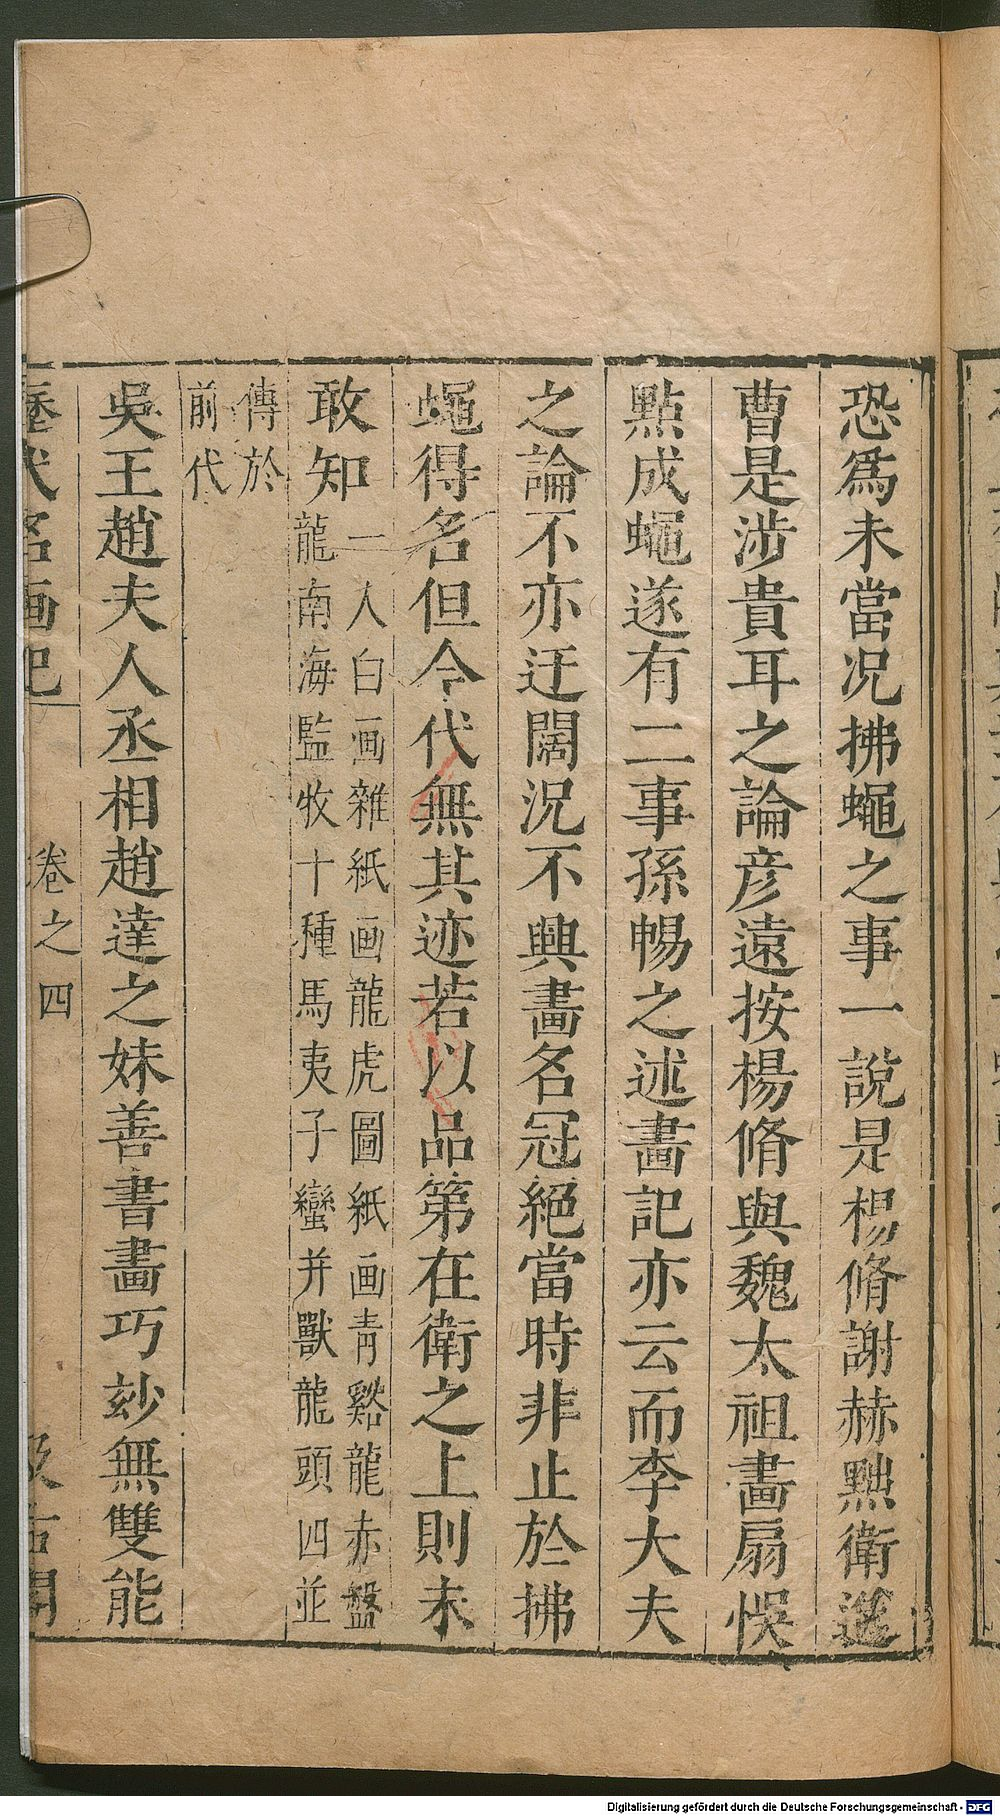 恐爲未當况拂蠅之事一說是楊脩謝赫黜衛進
曹是涉貴耳之論彦遠按楊脩與魏太祖畫扇悞
點成蠅遂有二事孫暢之述畫記亦云而李大夫
之論不亦迂闊況不興畫名冠絕當時非止於拂
蠅得名但今代無其迹若以品第在衛之上則未
敢知一人白画雜紙画龍虎圖紙画青谿龍赤盤
龍南海監牧十種馬夷子蠻并獸龍頭四並
傳於
前代
吳王趙夫人丞相趙達之妹善書畫巧玅無雙能
歷代名画記 卷之四 汲古閣
Digitalisierung gefördert durch die Deutsche Forschungsgemeinschaft - DFG